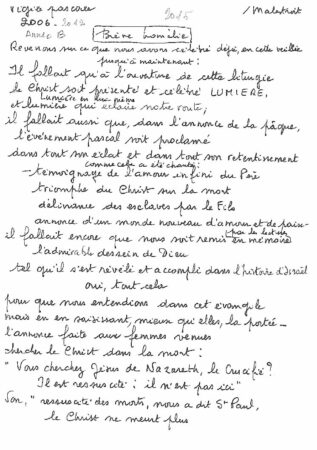 Vigile pascale / Malestroit
2006 - 2012 2015
Année B Brève homélie
Revenons sur ce que nous avons célébré déjà, en cette veillée
jusqu'à maintenant :
Il fallait qu'à l'ouverture de cette liturgie
le Christ soit présenté et célébré LUMIERE,
lumière en lui-même
et lumière qui éclaire notre route,
il fallait aussi que, dans l'annonce de la pâque,
l'évènement pascal soit proclamé
dans tout son éclat et dans tout son retentissement
comme cela a été chanté :
- témoignage de l'amour infini du Père
triomphe du Christ sur la mort
délivrance des esclaves par le Fils
annonce d'un monde nouveau d'amour et de paix -
il fallait encore que nous soit remis en mémoire
par les lectures
l'admirable dessein de Dieu
tel qu'il s'est révélé et accompli dans l'histoire d'Israël
oui, tout cela
pour que nous entendions dans cet évangile
mais en en saisissant, mieux qu'elles, la portée -
l'annonce faite aux femmes venues
chercher le Christ dans la mort :
"Vous cherchez Jésus de Nazareth, le Crucifié ?
Il est ressuscité : il n'est pas ici"
Non, "ressuscité des morts, nous a dit St Paul,
le Christ ne meurt plus